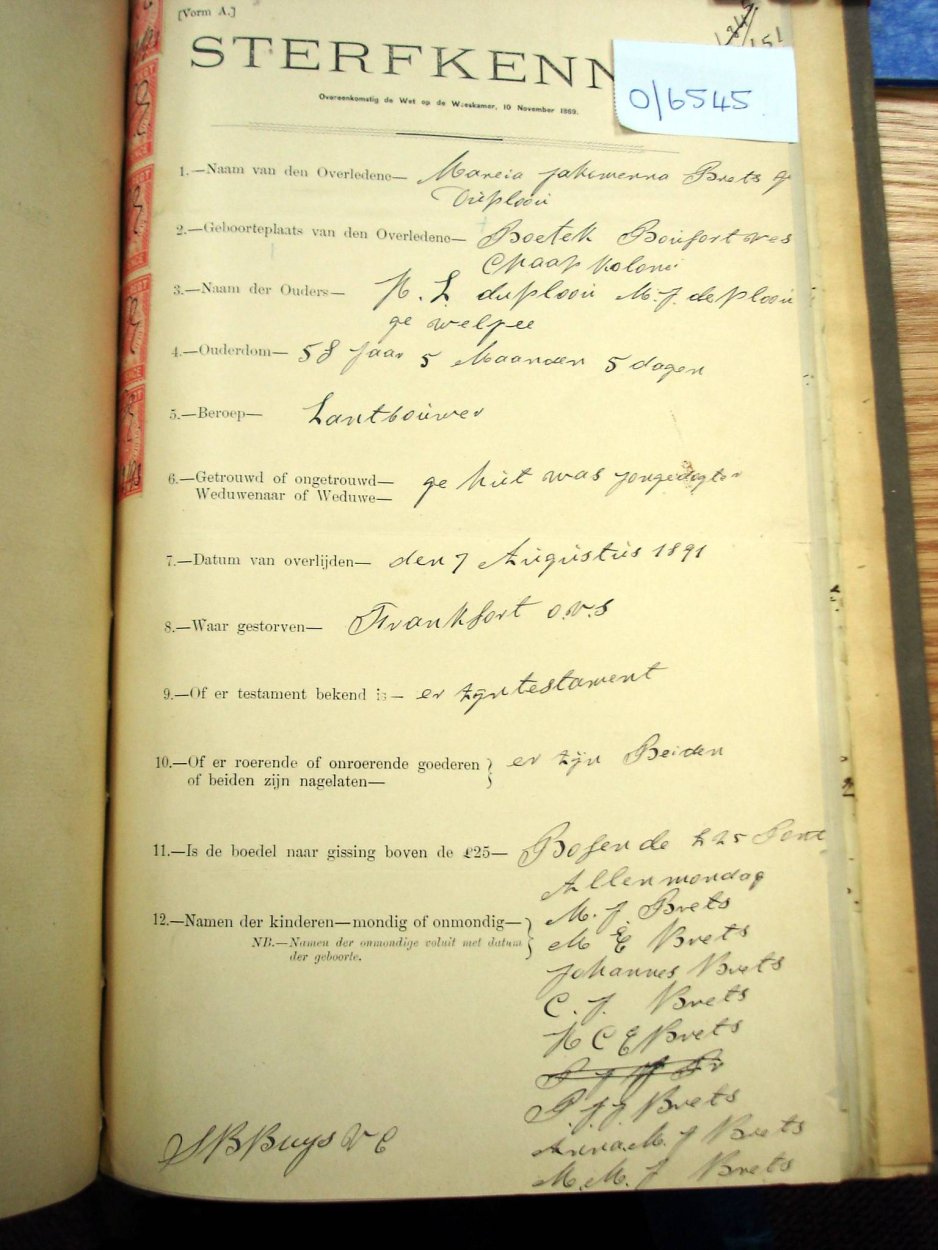 [Vorm A.]
151
STERFKENN
O/6545
Overeenkomstig de Wet op de Weeskamer, 10 November 1869.
1.—Naam van den Overledene— Mareia Jakemenna Brets ge
Duplooi
2.—Geboorteplaats van den Overledene— Boetek Boufort wes
Chaap Koloni
3.—Naam der Ouders— H. L. duplooi M. J. deplooi
ge welpee
4.—Ouderdom— 58 jaar 5 Maanden 5 dagen
5.—Beroep— Lantbouwer
6.—Getrouwd of ongetrouwd— ge hut was jongedogter
Weduwenaar of Weduwe—
7.—Datum van overlijden— den 7 Augustus 1891
8.—Waar gestorven— Frankfort o.v.s
9.—Of er testament bekend is— er zyn testament
10.—Of er roerende of onroerende goederen } er zijn Beiden
of beiden zijn nagelaten—
11.—Is de boedel naar gissing boven de £25— Bofen de £25 Pont
Allen mondag
12.—Namen der kinderen—mondig of onmondig— M. J. Brets
NB.—Namen der onmondige voluit met datum M E Brets
der geboorte.
Johannes Brets
C. J. Brets
H C E Brets
P. J. J. Brets
Anna M. J Brets
S B Buys V C
M. M. J Brets